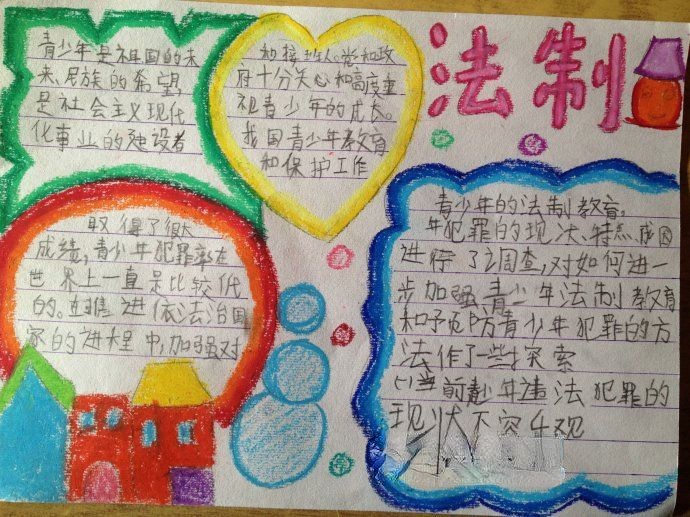 法制
青少年是祖国的未
来、民族的希望,
是社会主义现代
化事业的建设者
和接班人。党和政
府十分关心和高度重
视青少年的成长。
我国青少年教育
和保护工作
取得了很大
成绩,青少年犯罪率在
世界上一直是比较低
的。在推进依法治国
家的进程中,加强对
青少年的法制教育,
年犯罪的现状、特点、成因
进行了调查,对如何进一
步加强青少年法制教育
和预防青少年犯罪的方
法作了一些探索
(1)当前青少年违法犯罪的
现状不容乐观